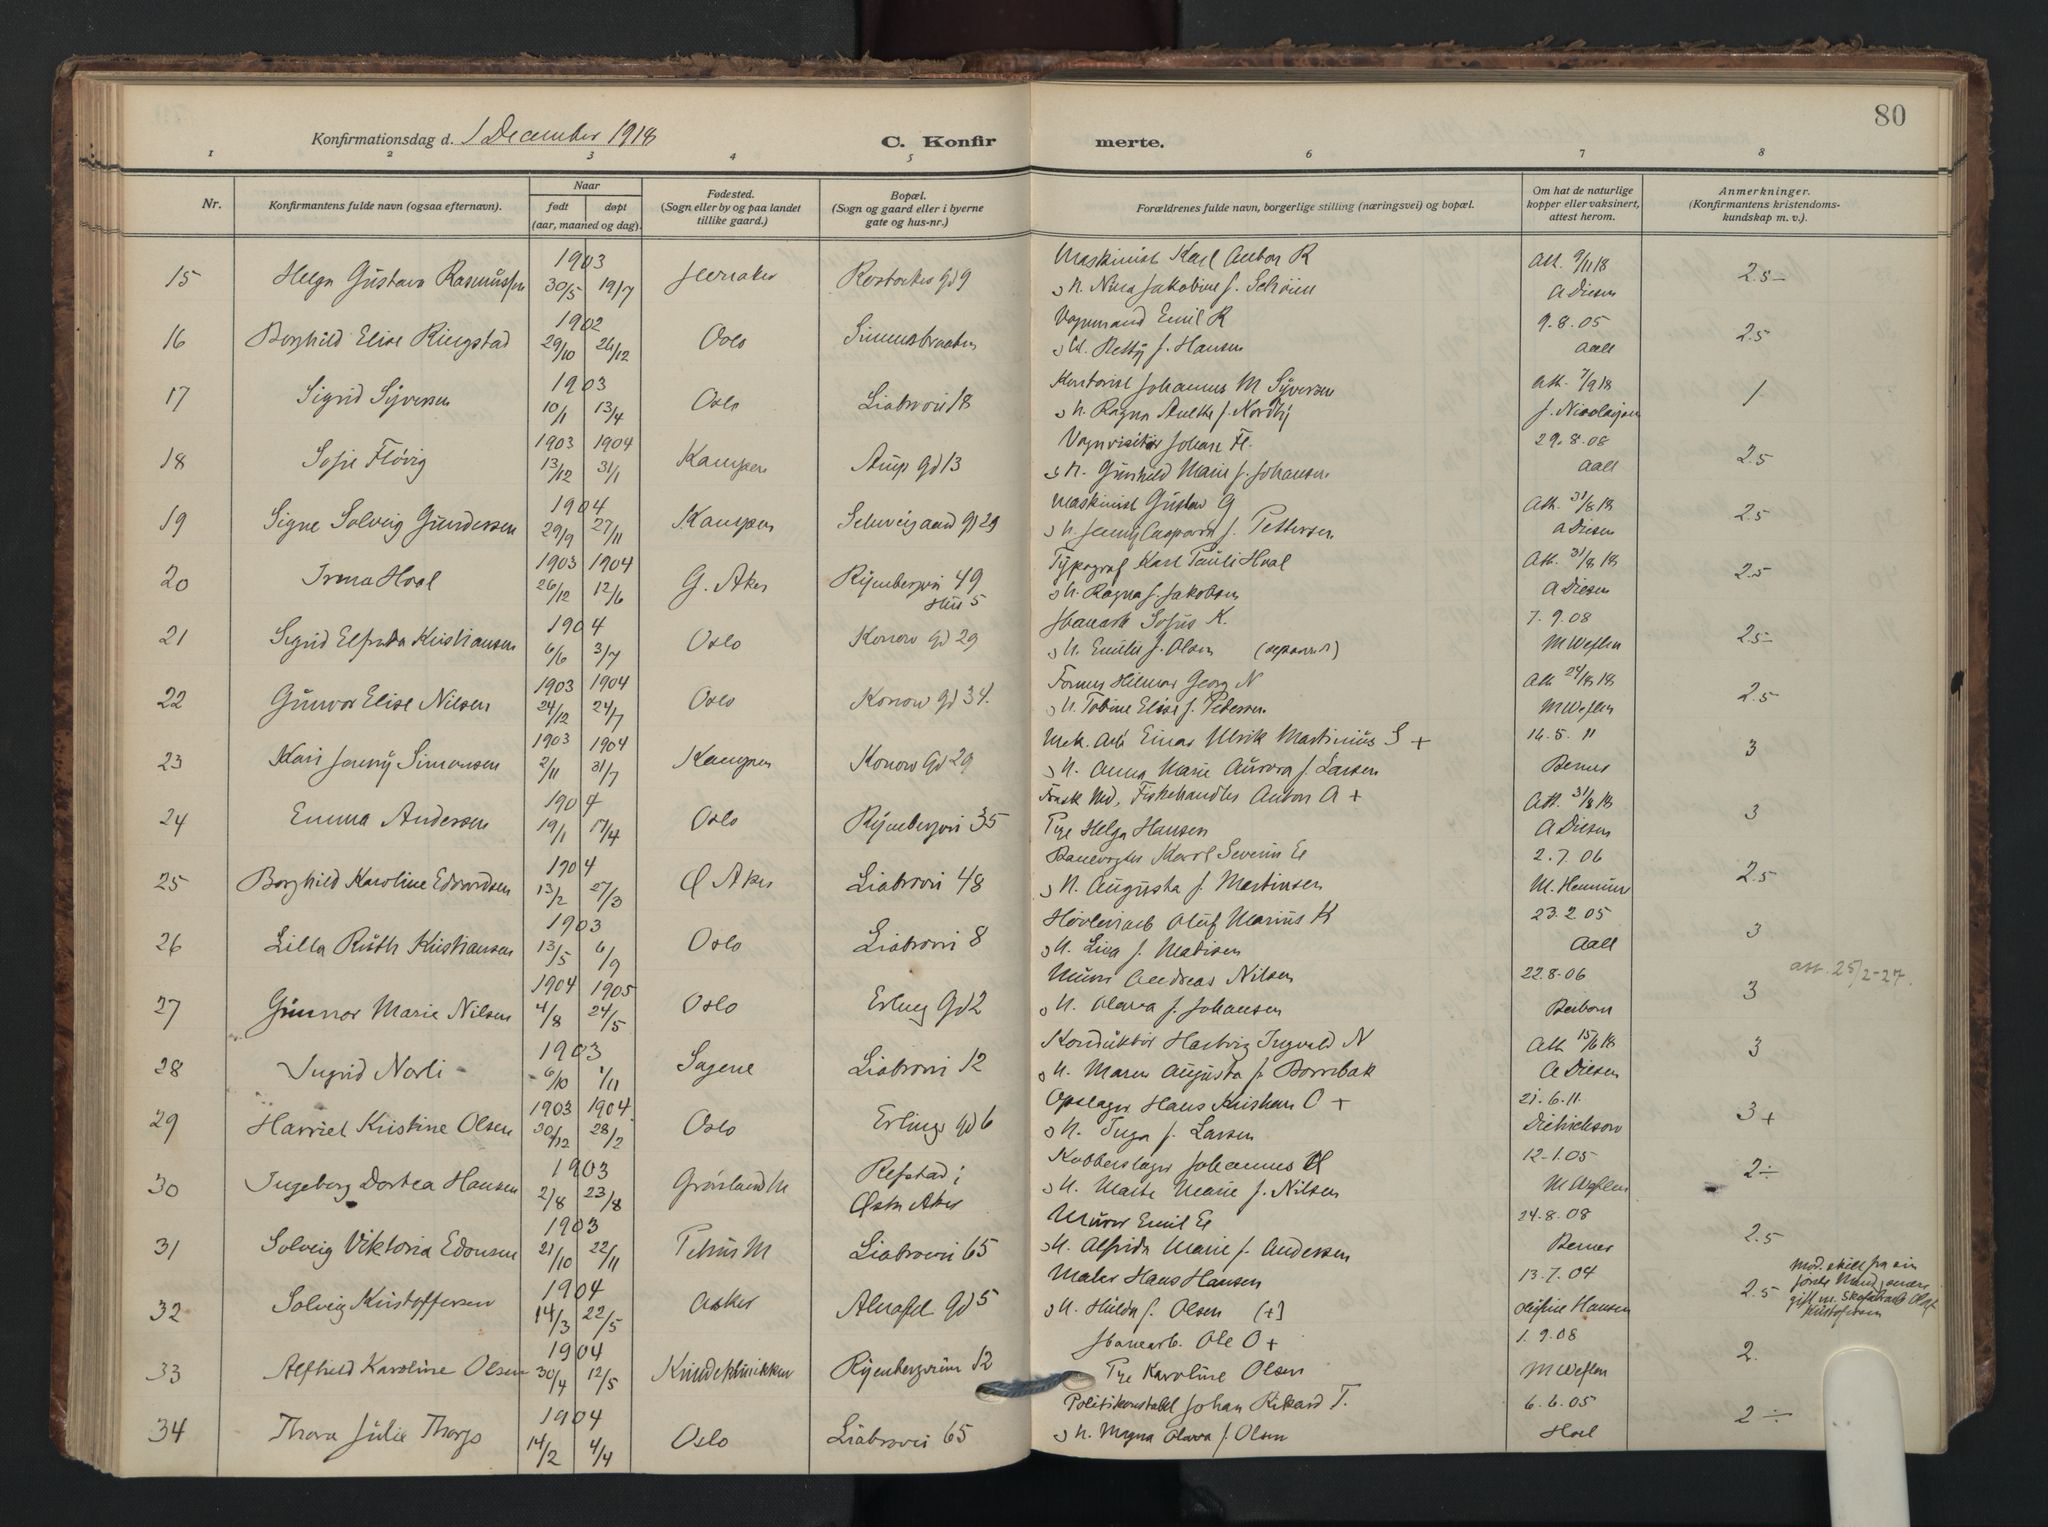 80
Konfirmationsdag d. 1 December 1918
C. Konfir merte.
1 2 3 4 5 6 7 8
Nr.
Konfirmantens fulde navn (ogsaa efternavn).
Naar
født døpt
(aar, maaned og dag).
Fødested.
(Sogn eller by og paa landet
tillike gaard.)
Bopæl.
(Sogn og gaard eller i byerne
gate og hus-nr.)
Forældrenes fulde navn, borgerlige stilling (næringsvei) og bopæl.
Om hat de naturlige
kopper eller vaksinert,
attest herom.
Anmerkninger.
(Konfirmantens kristendoms-
kundskap m. v.).
1903 Maskinist Karl Anton R Att. 9/11 18
15 Helga Gustava Rasmussen 30/5 19/7 Rostockes gd 9 2.5-
og h. Nina Jakobine f. A Diesen
1902 Vognmand Emil R 9.8.05
16 Borghild Elise Ringstad 29/10 26/12 Oslo Simensbraaten 2.5
og h. Betty f. Hansen Aall
1903 Kontorist Johannes M Syversen Att. 7/9 18
17 Sigrid Syversen 10/1 13/4 Oslo Liabrovei 18 1
og h. Ragna f. Nordby J. Nicolaysen
1903 1904 Vognvisitør Johan Fl. 29.8.08
18 Sofie Fløvig 13/12 31/1 Kampen Aúps gd 13 2.5
og h. Gunhild Marie f. Johansen Aall
1904 Maskinist Gustav G Att. 31/8 18
19 Signe Solveig Gundersen 29/9 27/11 Kampen Schweigaard gd 29 2.5
og h. Jenny f. Pettersen A Diesen
1903 1904 Typograf Karl Pauli Hoal Att. 31/8 18
20 Irma Hoal 26/12 12/6 G. Aker Ryenbergvei 49 2.5
Hus 5 og h. Ragna f. Jakobsen A Diesen
1904 Sofus K. 7.9.08
21 Sigrid Elfrida Kristiansen 6/6 3/7 Oslo Konow gd 29 2.5-
og h. Emilie f. Olsen (separert) M Weflen
1903 1904 Former Hilmar Georg N Att 24/8 18
22 Gunvor Elise Nilsen 24/12 24/7 Oslo Konow gd 34. 2.5
og h. Tobine Elise f. Petersen M Weflen
1903 1904 Mek. Arb Einar Ulrik Martinius S + 16.5.11
23 Kari Jenny Simonsen 2/11 31/7 Kampen Konow Gd 29 3
og h. Anna Marie Aurora f. Larsen Berner
1904 Frask. Md, Fiskehandler Anton A + Att. 31/8 18
24 Emma Andersen 19/1 17/4 Oslo Ryenbergvei 35 3
Pge Helga Hansen A Diesen
1904 Banevogter Karl Severin E 2.7.06
25 Borghild Karoline Edvardsen 13/2 27/3 Ø Aker Liabrovei 48 2.5
og h. Augusta f. Martinsen M.
1903 Høvleriarb Oluf Marius K 23.2.05
26 Lilla Ruth Kristiansen 13/5 6/9 Oslo Liabrovei 8 3
og h. Lina f. Madisen Aall
1904 1905 Murer Andreas Nilsen 22.8.06 att. 25/2-27.
27 Gunnor Marie Nilsen 4/8 24/5 Oslo Erling Gd 2 3
og h. Olava f. Johansen
1903 Konduktør Hartvig Ingvald N Att 15/6 18
28 Ingrid Norli 6/10 1/11 Sagene Liabrovei 12 3
og h. Maren Augusta f. Bornebak A Diesen
1903 1904 Opslager Hans Kristian O + 21.6.11
29 Harriet Kristine Olsen 30/12 28/2 Oslo Erlings gd 6 3 +
og h. Inga f. Larsen Dietrichson
1903 Kobberslager Johannes H 12-1.05
30 Ingeborg Dortea Hansen 2/8 23/8 Grønland M Refstad i 2÷
Østre Aker og h. Marte Marie f. Nilsen M Weflen
1903 Murer Emil E 24.8.08
31 Solveig Viktoria Edonsen 21/10 22/11 Petrus M Liabrovei 65 2.5
og h. Alfrida Marie f. Andersen Berner
1904 Maler Hans Hansen 13.7.04 Mod. skilt fra sin
32 Solvig Kristoffersen 14/3 22/5 Asker Alnafet gd 5 2.5 første Mand, anden
gift m. Skofabarb Olaf
Kristoffersen
og h. Hulda f. Olsen (+) Hansen
1904 Jbanearb. Ole O + 1.9.08
33 Alfhild Karoline Olsen 30/4 12/5 Kvindeklinikken Ryenbergveien 12 2.
Pge Karoline Olsen M Weflen
1904 Politikonstabel Johan Rikard T. 6.6.05
34 Thora Julie Thorp 14/2 4/4 Oslo Liabrovei 65 2 ÷
og h. Magna Olava f. Olsen Hoel